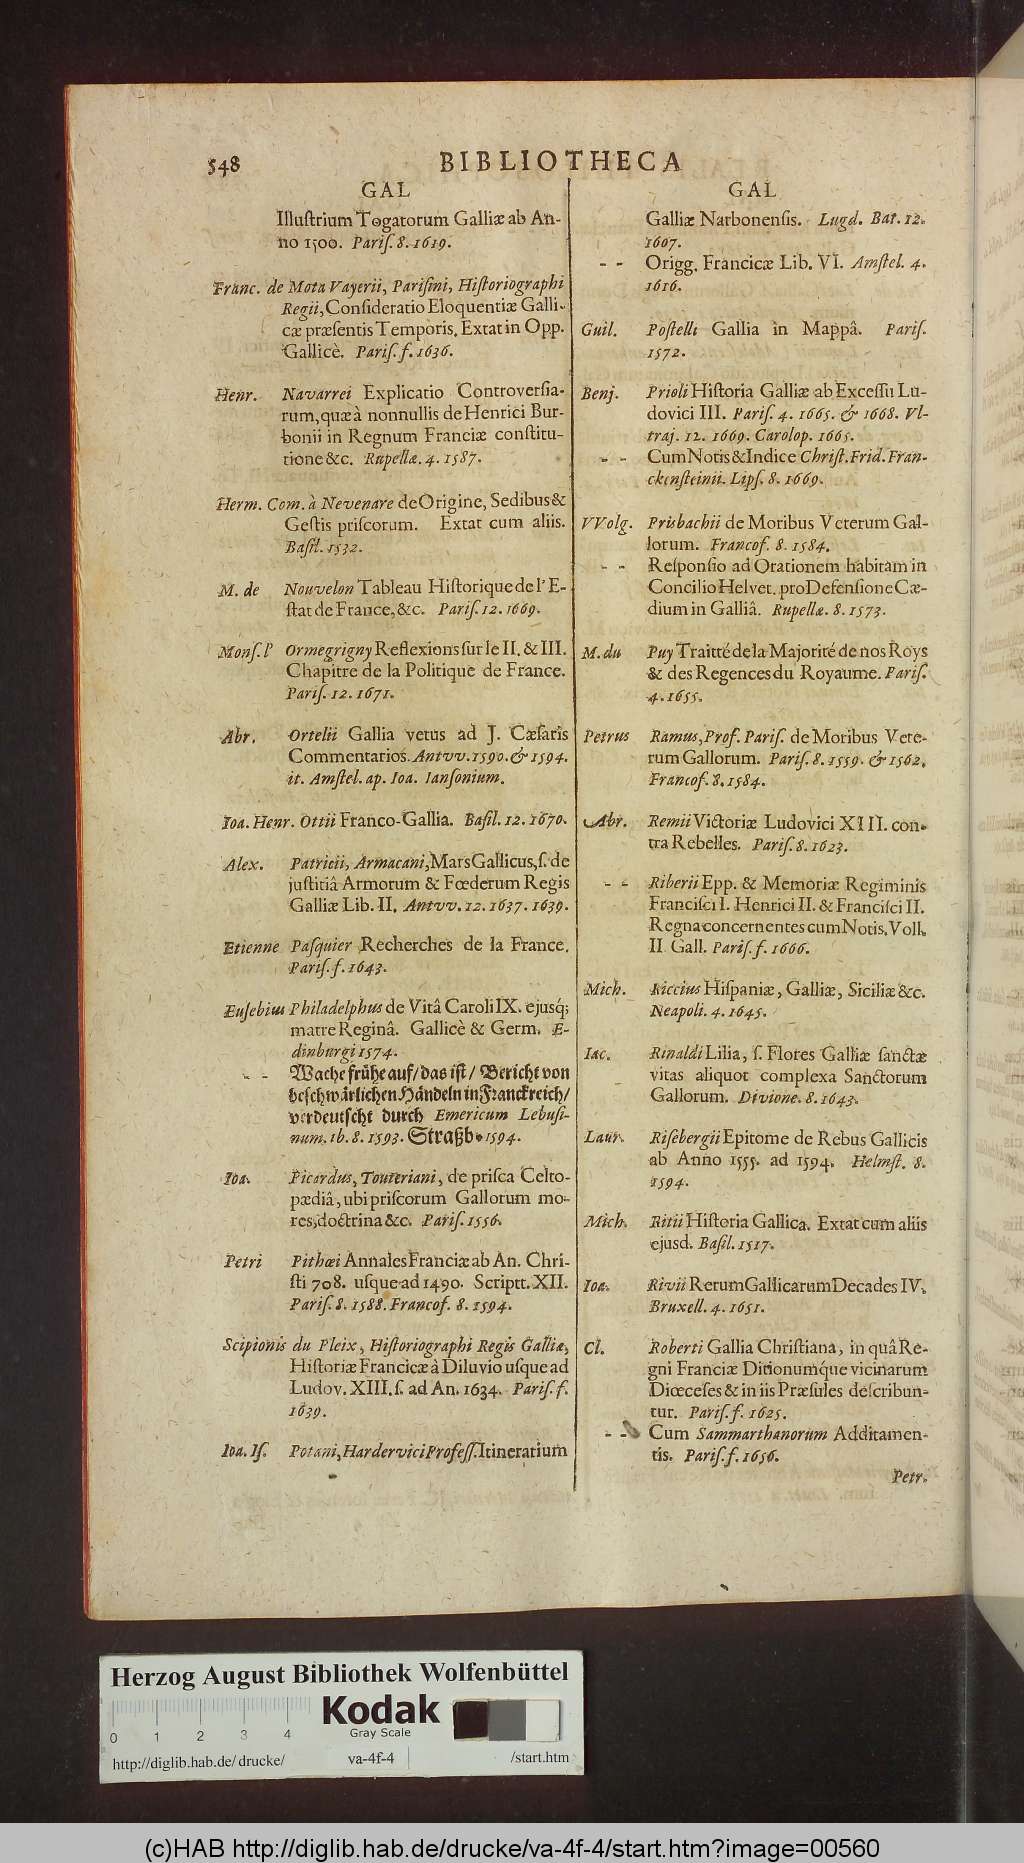 548
BIBLIOTHECA
GAL
Illuſtrium Togatorum Galliæ ab An-
no 1500. Pariſ. 8. 1619.
Franc. de Mota Vayerii, Pariſini, Hiſtoriographi
Regii, Conſideratio Eloquentiæ Galli-
cæ præſentis Temporis. Extat in Opp.
Gallicè. Pariſ. f. 1636.
Henr. Navarrei Explicatio Controverſia-
rum, quæ à nonnullis de Henrici Bur-
bonii in Regnum Franciæ conſtitu-
tione &c. Rupellæ. 4. 1587.
Herm. Com. à Nevenare de Origine, Sedibus &
Geſtis priſcorum. Extat cum aliis.
Baſil. 1532.
M. de Nouvelon Tableau Hiſtorique de l'E-
ſtat de France, &c. Pariſ. 12. 1669.
Monſ. l' Ormegrigny Reflexions ſur le II. & III.
Chapitre de la Politique de France.
Pariſ. 12. 1671.
Abr. Ortelii Gallia vetus ad J. Cæſaris
Commentarios. Antvv. 1590. & 1594.
it. Amſtel. ap. Ioa. Ianſonium.
Ioa. Henr. Ottii Franco-Gallia. Baſil. 12. 1670.
Alex. Patricii, Armacani, Mars Gallicus, ſ. de
juſtitiâ Armorum & Fœderum Regis
Galliæ Lib. II. Antvv. 12. 1637. 1639.
Etienne Paſquier Recherches de la France.
Pariſ. f. 1643.
Euſebius Philadelphus de Vitâ Caroli IX. ejusq́;
matre Reginâ. Gallicè & Germ. E-
dinburgi 1574.
- - Wache frühe auf/ das iſt/ Bericht von
beſchwärlichen Händeln in Franckreich/
verdeutſcht durch Emericum Lebuſi-
num. ib. 8. 1593. Straßb. 1594.
Ioa. Picardus, Touteriani, de priſca Celto-
pædiâ, ubi priſcorum Gallorum mo-
res, doctrina &c. Pariſ. 1556.
Petri Pithœi Annales Franciæ ab An. Chri-
ſti 708. uſque ad 1490. Scriptt. XII.
Pariſ. 8. 1588. Francof. 8. 1594.
Scipionis du Pleix, Hiſtoriographi Regis Galliæ,
Hiſtoriæ Francicæ à Diluvio uſque ad
Ludov. XIII. ſ. ad An. 1634. Pariſ. f.
1639.
Ioa. Iſ. Potani, Hardervici Profeſſ. Itinerarium
GAL
Galliæ Narbonenſis. Lugd. Bat. 12.
1607.
- - Origg. Francicæ Lib. VI. Amſtel. 4.
1616.
Guil. Poſtelli Gallia in Mappâ. Pariſ.
1572.
Benj. Prioli Hiſtoria Galliæ ab Exceſſu Lu-
dovici III. Pariſ. 4. 1665. & 1668. Vl-
traj. 12. 1669. Carolop. 1665.
- - Cum Notis & Indice Chriſt. Frid. Fran-
ckenſteinii. Lipſ. 8. 1669.
VVolg. Prisbachii de Moribus Veterum Gal-
lorum. Francof. 8. 1584.
- - Reſponſio ad Orationem habitam in
Concilio Helvet. pro Defenſione Cæ-
dium in Galliâ. Rupellæ. 8. 1573.
M. du Puy Traitté de la Majorité de nos Roys
& des Regences du Royaume. Pariſ.
4. 1655.
Petrus Ramus, Prof. Pariſ. de Moribus Vete-
rum Gallorum. Pariſ. 8. 1559. & 1562.
Francof. 8. 1584.
Abr. Remii Victoriæ Ludovici XIII. con-
tra Rebelles. Pariſ. 8. 1623.
- - Riberii Epp. & Memoriæ Regiminis
Franciſci I. Henrici II. & Franciſci II.
Regna concernentes cum Notis. Voll.
II Gall. Pariſ. f. 1666.
Mich. Riccius Hiſpaniæ, Galliæ, Siciliæ &c.
Neapoli. 4. 1645.
Iac. Rinaldi Lilia, ſ. Flores Galliæ ſanctæ
vitas aliquot complexa Sanctorum
Gallorum. Divione. 8. 1643.
Laur. Riſebergii Epitome de Rebus Gallicis
ab Anno 1555. ad 1594. Helmſt. 8.
1594.
Mich. Ritii Hiſtoria Gallica. Extat cum aliis
ejusd. Baſil. 1517.
Ioa. Rivii Rerum Gallicarum Decades IV.
Bruxell. 4. 1651.
Cl. Roberti Gallia Chriſtiana, in quâ Re-
gni Franciæ Ditionumq́ue vicinarum
Diœceſes & in iis Præſules deſcribun-
tur. Pariſ. f. 1625.
- - Cum Sammarthanorum Additamen-
tis. Pariſ. f. 1656.
Petr.
Herzog August Bibliothek Wolfenbüttel
Kodak
Gray Scale
0 1 2 3 4
http://diglib.hab.de/drucke/ va-4f-4 /start.htm
(c)HAB http://diglib.hab.de/drucke/va-4f-4/start.htm?image=00560